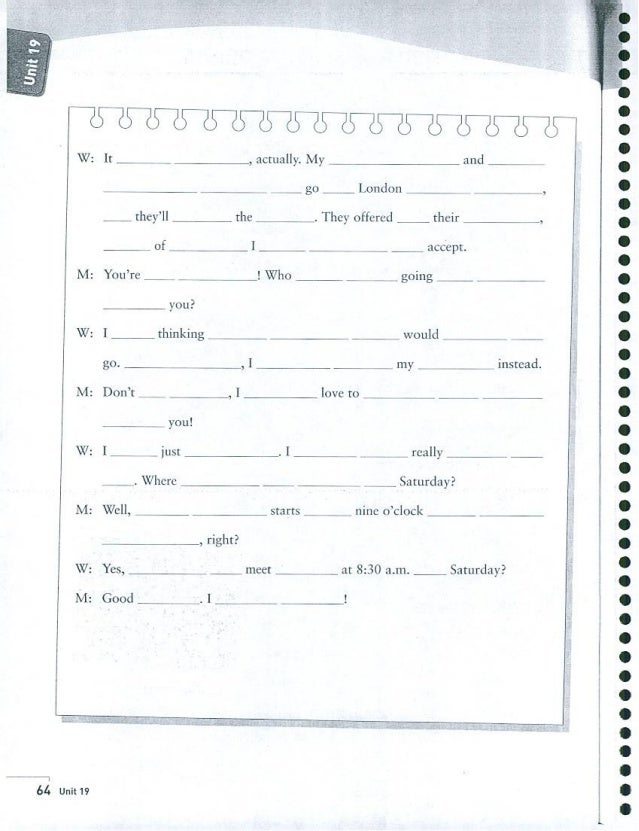 Unit 19
W: It ______ ______, actually. My ______ and ______
______ ______ ______ go ____ London ______ ______,
____ they'll ______ the ______. They offered ____ their ______,
______ of ______ I ______ ______ ____ accept.
M: You're ____ ______! Who ______ ______ going ____ ______
______ you?
W: I ______ thinking ______ ______ ______ ____ would ______ ____
go. ______, I ______ ______ my ______ instead.
M: Don't ____ ____, I ______ love to ______ ______ ____
______ you!
W: I ______ just ______. I ______ ______ really ______ ____
____. Where ______ ____ ______ ______ Saturday?
M: Well, ______ ______ starts ______ nine o'clock ______ ______
______, right?
W: Yes, ______ ____ meet ______ at 8:30 a.m. ____ Saturday?
M: Good ______. I ______ ______!
64 Unit 19